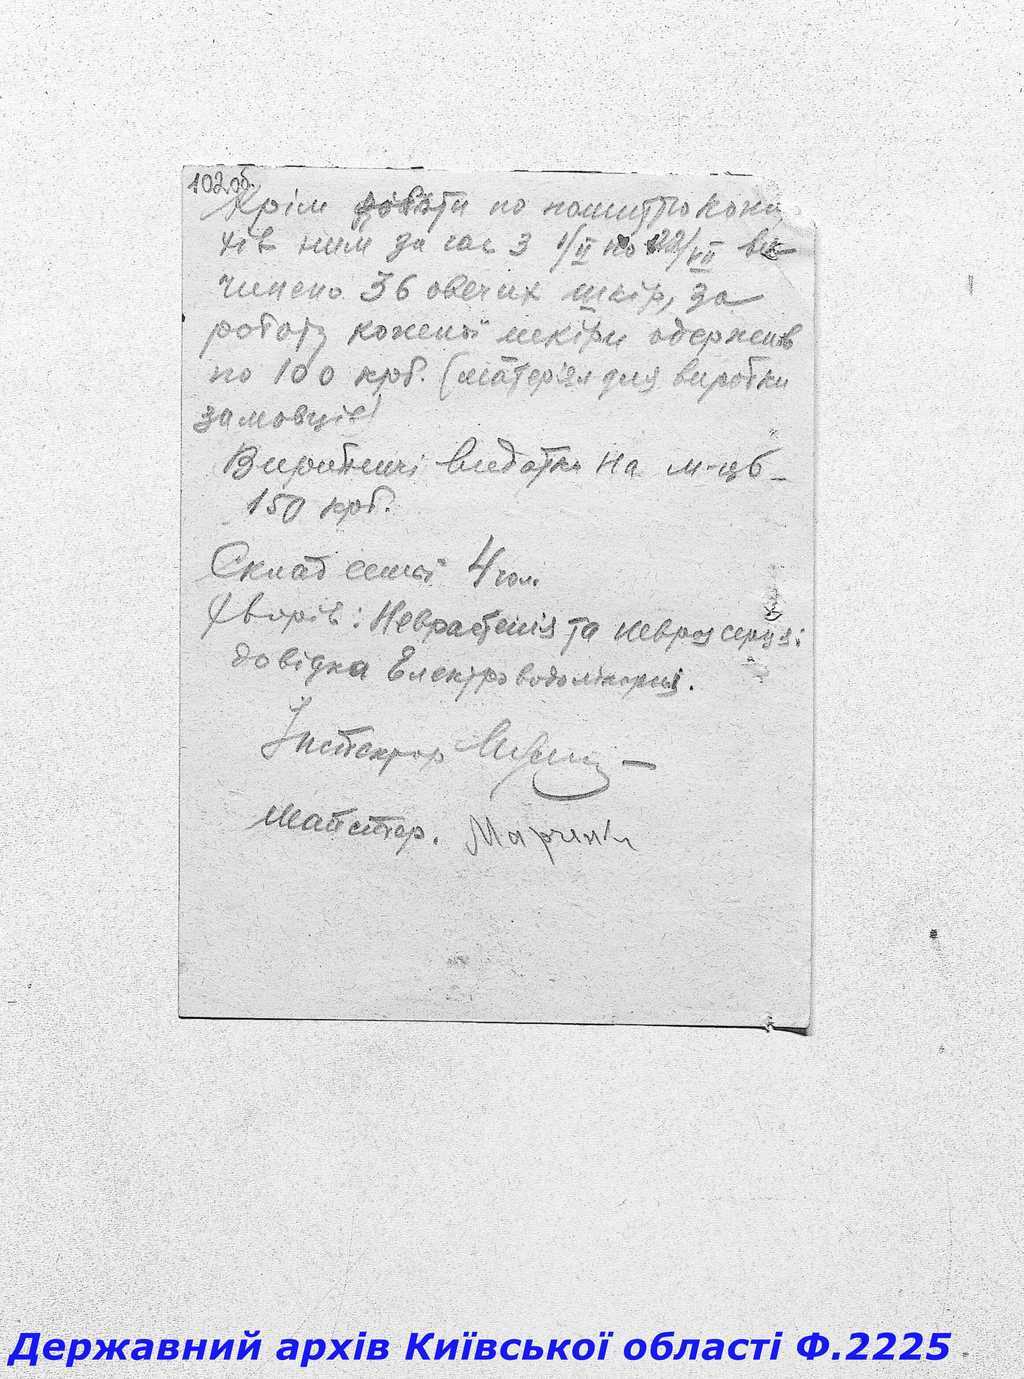 102 об.
Крім роботи по пошиттю кожу
хів ним за час з 1/II по 22/VII ви
чинено 36 овечих шкір, за
роботу кожної шкіри одержив
по 100 крб. (матеріял для виробки
замовців)
Виробничі видатки на м-ць
150 крб.
Склад семї 4 чол.
Хворів: Неврастенія та невроз серця:
довідка Електроводолікарні.
Інспектор
Майстер. Марченко
Державний архів Київської області Ф.2225